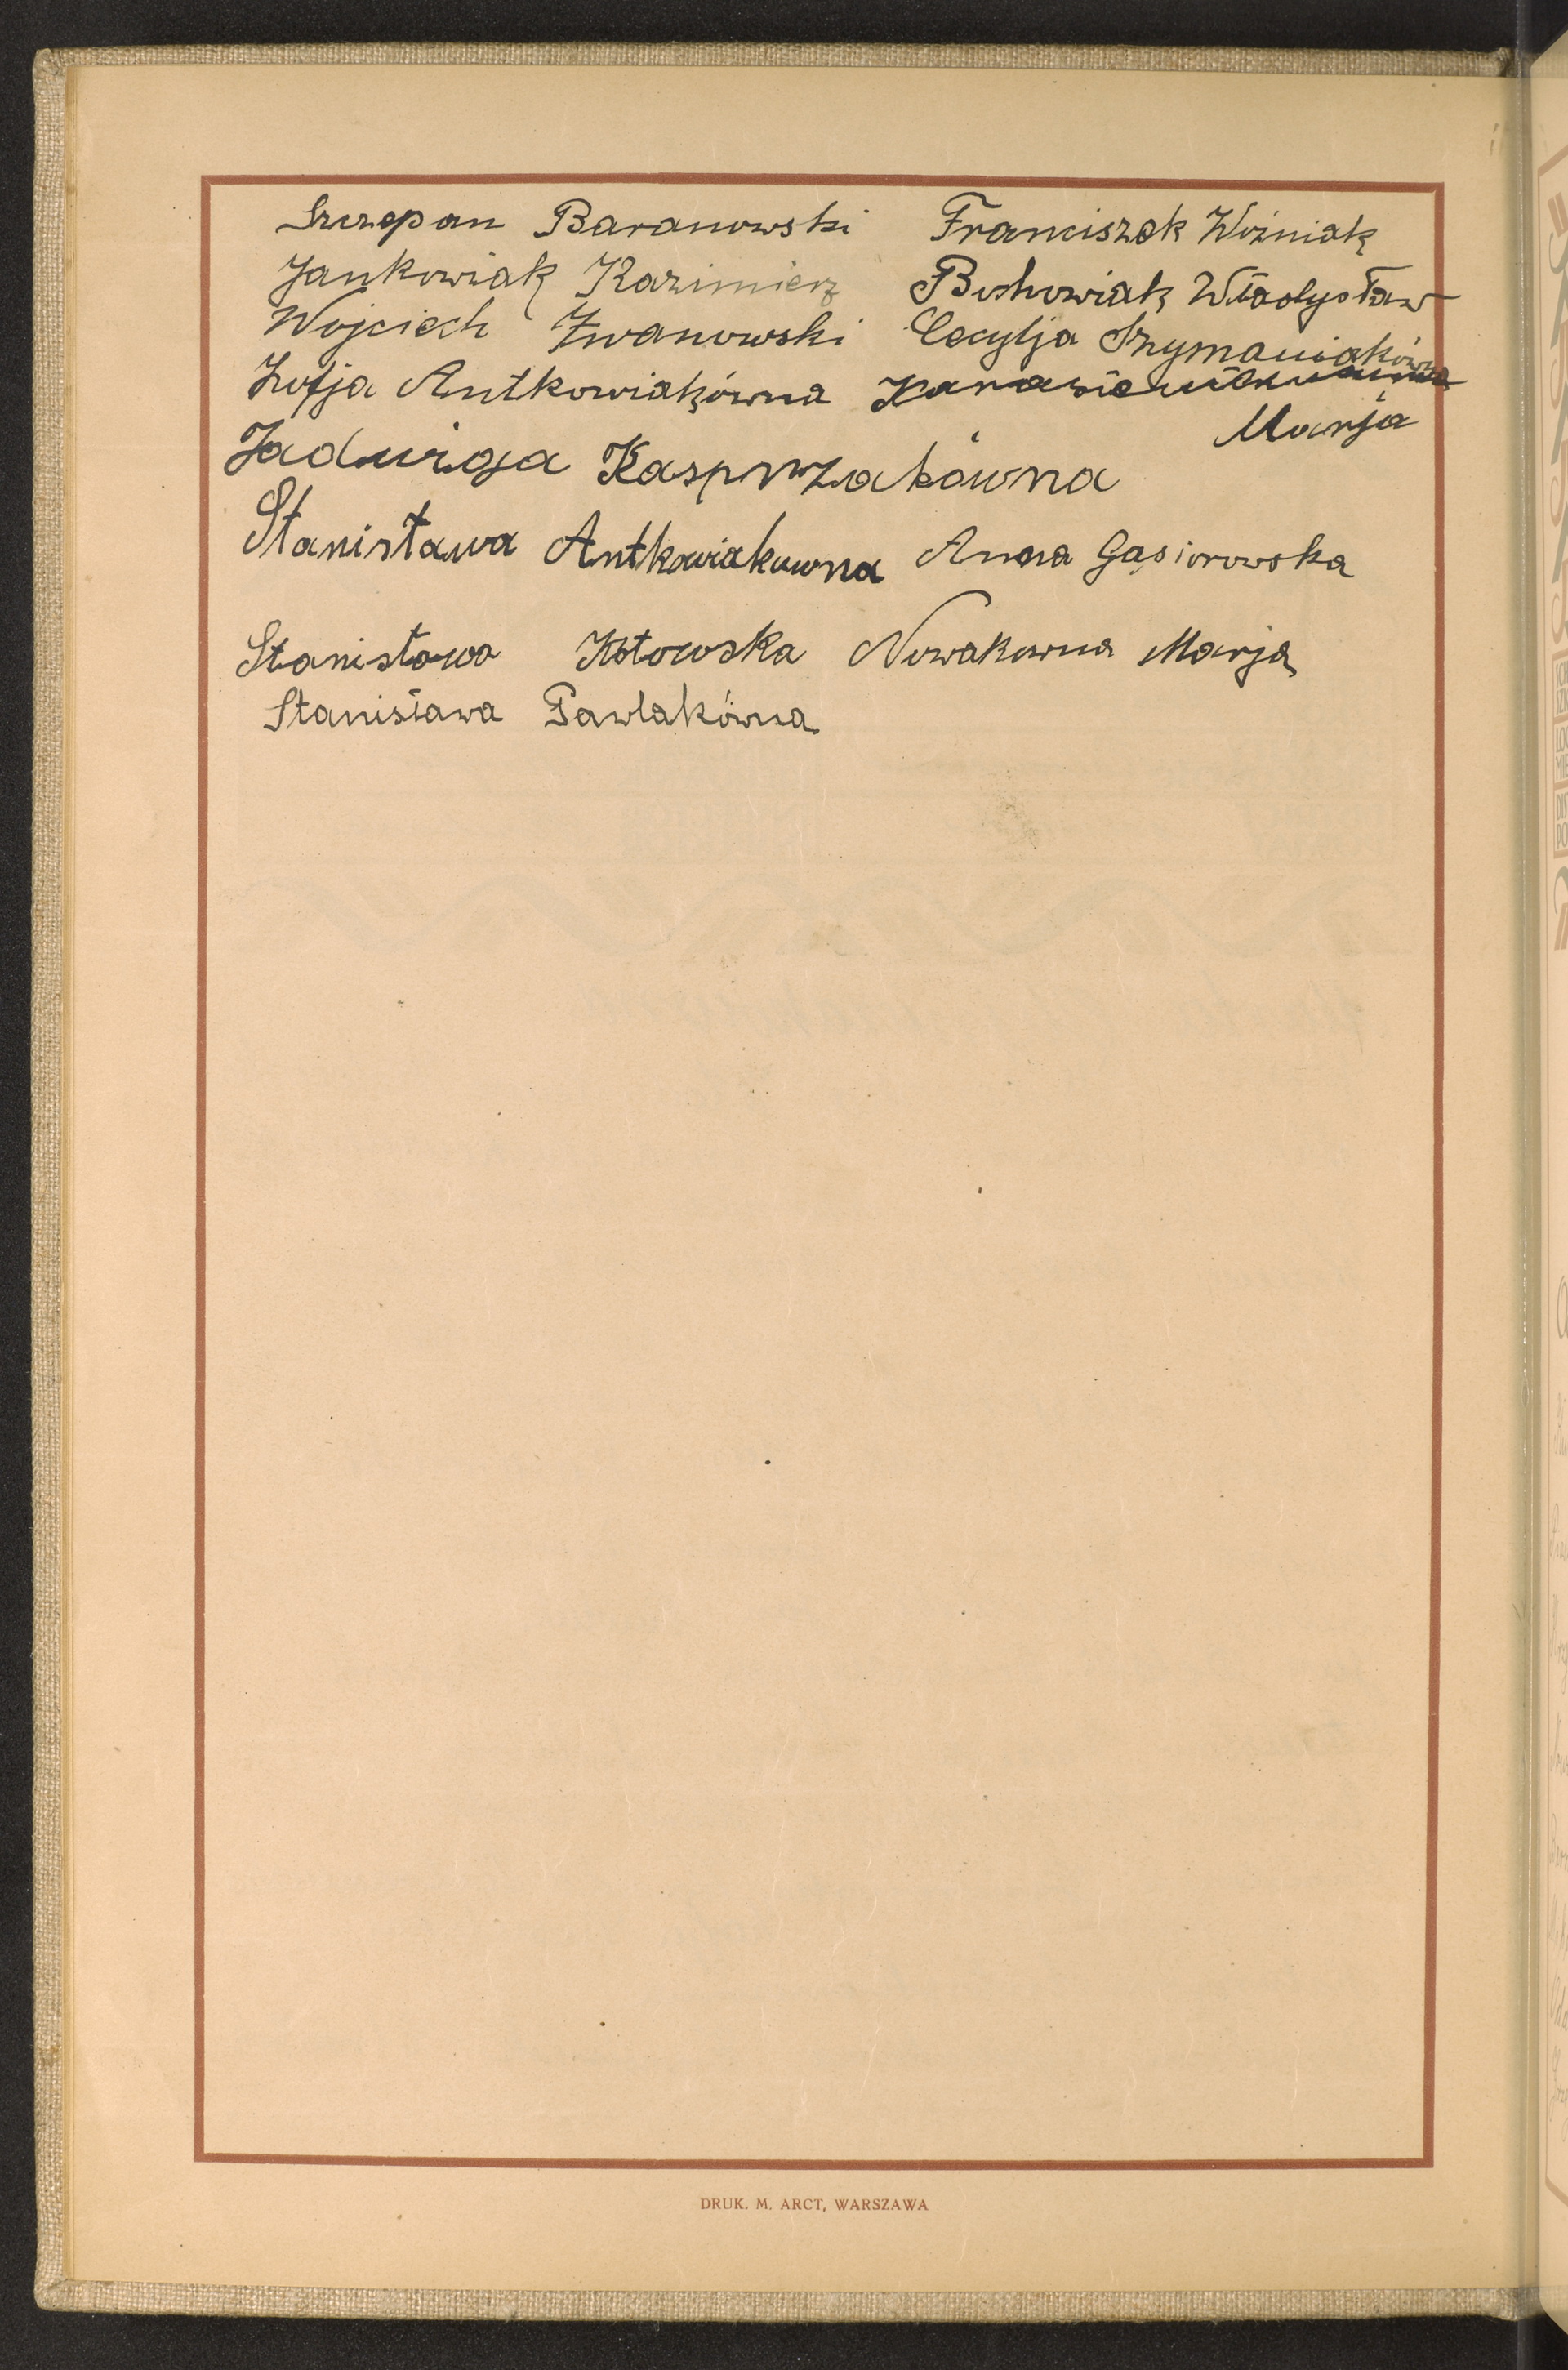 Szczepan Baranowski Franciszek Woźniak
Jankowiak Kazimierz Władysław
Wojciech Iwanowski Cecylja Szymaniakówna
Zofja Antkowiakówna
Marja
Jadwiga Kasprzakówna
Stanisława Antkowiakuwna Anna Gąsiorowska
Stanisława Kotowska Nowakowna Marja
Stanisława Pawlakówna
DRUK. M. ARCT, WARSZAWA